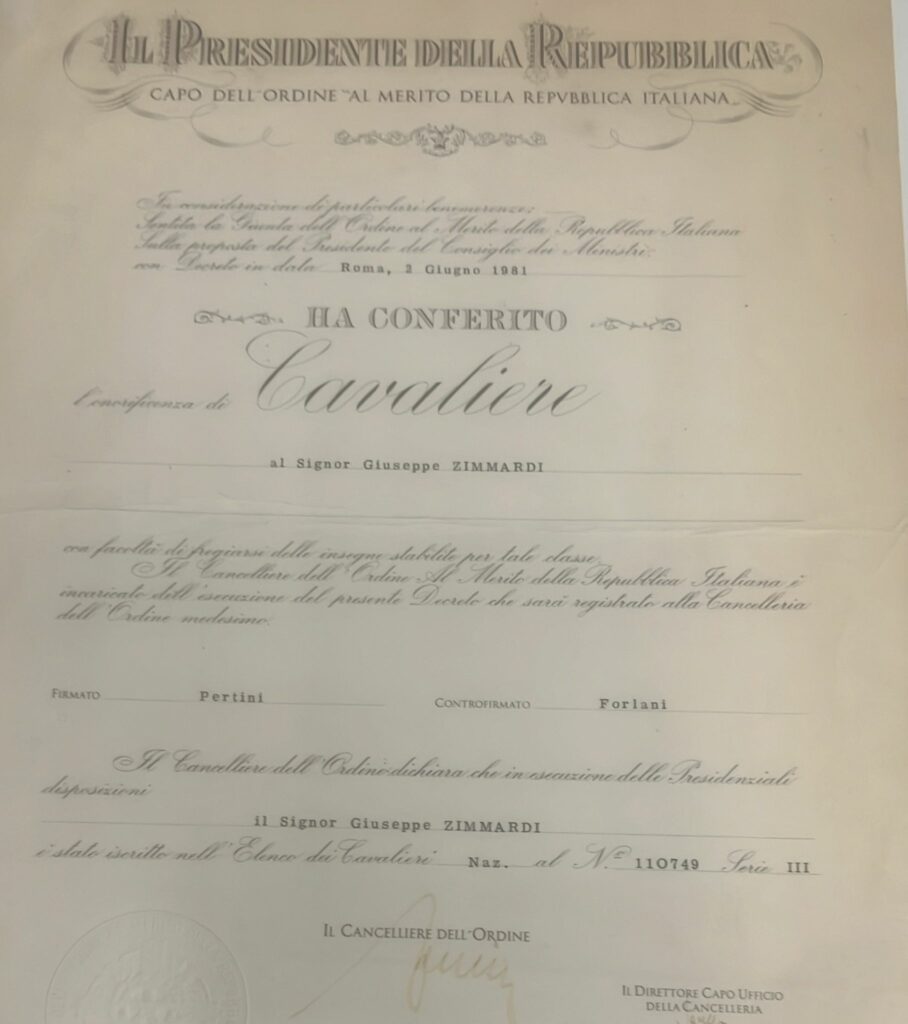 IL PRESIDENTE DELLA REPUBBLICA
CAPO DELL'ORDINE "AL MERITO DELLA REPVBBLICA ITALIANA"
In considerazione di particolari benemerenze;
Sentita la Giunta dell'Ordine al Merito della Repubblica Italiana
Sulla proposta del Presidente del Consiglio dei Ministri:
con Decreto in data Roma, 2 Giugno 1981
HA CONFERITO
l'onorificenza di Cavaliere
al Signor Giuseppe ZIMMARDI
con facoltà di fregiarsi delle insegne stabilite per tale classe.
Il Cancelliere dell'Ordine Al Merito della Repubblica Italiana è
incaricato dell'esecuzione del presente Decreto che sarà registrato alla Cancelleria
dell'Ordine medesimo.
FIRMATO Pertini CONTROFIRMATO Forlani
Il Cancelliere dell'Ordine dichiara che in esecuzione delle Presidenziali
disposizioni
il Signor Giuseppe ZIMMARDI
è stato iscritto nell'Elenco dei Cavalieri Naz. al N.º 110749 Serie III
IL CANCELLIERE DELL'ORDINE
IL DIRETTORE CAPO UFFICIO
DELLA CANCELLERIA